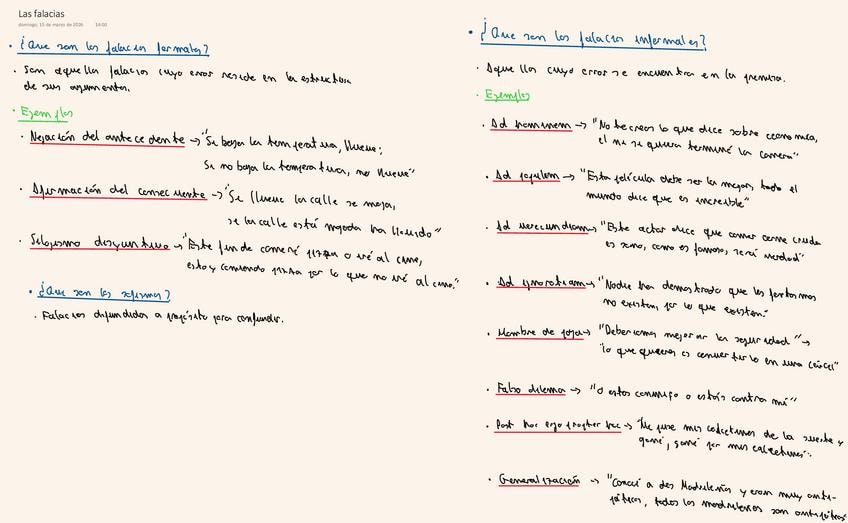 Las falacias
domingo, 15 de marzo de 2026 14:00
• ¿Que son las falacias formales?
• Son aquellas falacias cuyo error reside en la estructura
de sus argumentos.
• Ejemplos
• Negación del antecedente → "Si baja la temperatura, llueve;
Si no baja la temperatura, no llueve"
• Afirmación del consecuente → "Si llueve la calle se moja,
si la calle está mojada ha llovido"
• Silogismo disyuntivo → "Este finde comeré pizza o iré al cine,
estoy comiendo pizza por lo que no iré al cine."
• ¿Que son los sofismas?
• Falacias difundidas a propósito para confundir.
• ¿Que son las falacias informales?
• Aquellas cuyo error se encuentra en la premisa.
• Ejemplos
• Ad hominem → "No te creas lo que dice sobre economía,
el ni siquiera terminó la carrera"
• Ad populum → "Esta película debe ser la mejor, todo el
mundo dice que es increíble"
• Ad verecundiam → "Este actor dice que comer carne cruda
es sano, como es famoso, será verdad"
• Ad ignorantiam → "Nadie ha demostrado que los fantasmas
no existen, por lo que existen."
• Hombre de paja → "Deberíamos mejorar la seguridad" →
"lo que quieres es convertirlo en una cárcel"
• Falso dilema → "O estas conmigo o estás contra mí"
• Post hoc ergo propter hoc → "Me puse mis calcetines de la suerte y
gané, gané por mis calcetines".
• Generalización → "Conocí a dos Madrileños y eran muy anti-
páticos, todos los madrileños son antipáticos